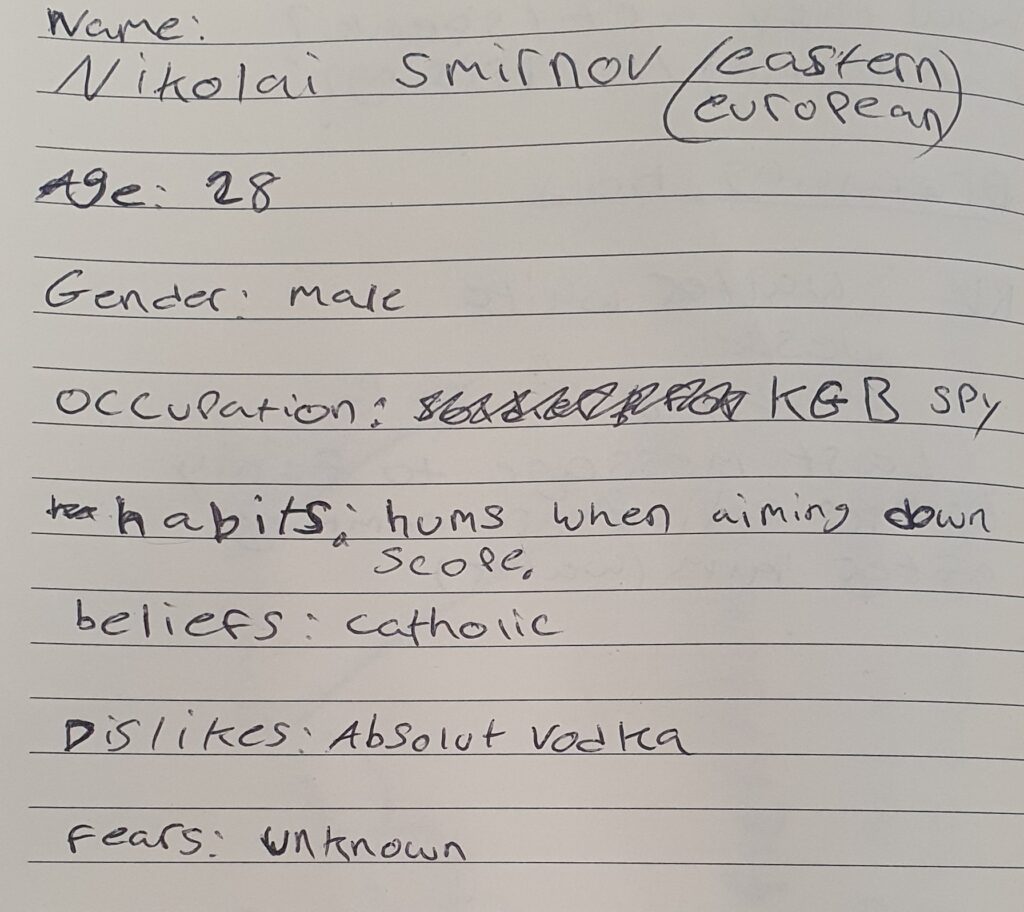 Name:
Nikolai Smirnov (eastern
european)
Age: 28
Gender: male
Occupation: KGB spy
habits: hums when aiming down
scope.
beliefs: catholic
Dislikes: Absolut vodka
Fears: unknown